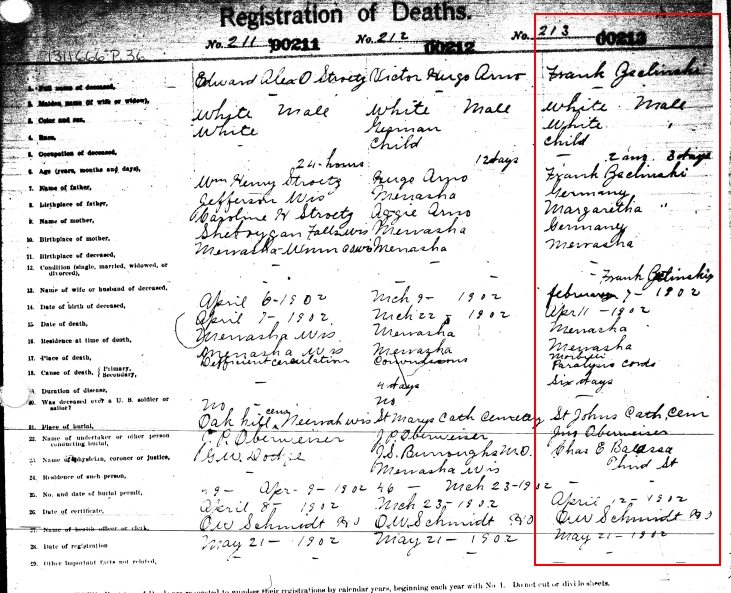 Registration of Deaths.
No. 211 00211 No. 212 00212 No. 213 00213
1311666 P. 36
1. Full name of deceased, Edward Alex O Stroetz Victor Hugo Arno Frank
2. Maiden name (if wife or widow),
3. Color and sex, White Male White Male White Male
4. Race, White German White
5. Occupation of deceased, Child Child
6. Age (years, months and days), 24-hours 12 days 3 days
7. Name of father, Wm Henry Stroetz Hugo Arno Frank
8. Birthplace of father, Jefferson Wis Menasha Germany
9. Name of mother, Caroline W Stroetz Aggie Arno Margaretha "
10. Birthplace of mother, Sheboygan Falls Wis Menasha Germany
11. Birthplace of deceased, Menasha Menasha Menasha
12. Condition (single, married, widowed, or divorced),
13. Name of wife or husband of deceased, Frank
14. Date of birth of deceased, April 6-1902 Mch 9- 1902 february 7-1902
15. Date of death, April 7-1902 Mch 22- 1902 Apr 11-1902
16. Residence at time of death, Menasha Wis Menasha Menasha
17. Place of death, Menasha Wis Menasha Menasha
18. Cause of death, { Primary, Secondary, circulation Convulsions Paralysis cords
19. Duration of disease, 4 days Six days
20. Was deceased ever a U. S. soldier or sailor? No No
21. Place of burial, Oak hill cemy Neenah Wis St Marys Cath Cemetery St Johns Cath. Cem
22. Name of undertaker or other person conducting burial, J. P. Oberweiser J. P. Oberweiser Oberweiser
23. Name of physician, coroner or justice, G. W. Dodge J. S. Burroughs M.D. Chas E
24. Residence of such person, Menasha Wis Third St
25. No. and date of burial permit, Apr-9-1902 46 - Mch 23-1902
26. Date of certificate, April 8-1902 Mch 23-1902 April 12-1902
27. Name of health officer or clerk, O.W. Schmidt O.W. Schmidt O.W. Schmidt
28. Date of registration May 21-1902 May 21-1902 May 21-1902
29. Other important facts not related,
their registrations by calendar years, beginning each year with No. 1. Do not cut or divide sheets.